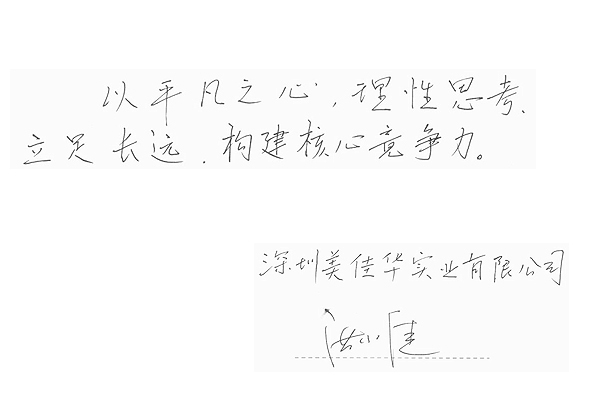 以平凡之心，理性思考，
立足长远，构建核心竞争力。
深圳美佳华实业有限公司